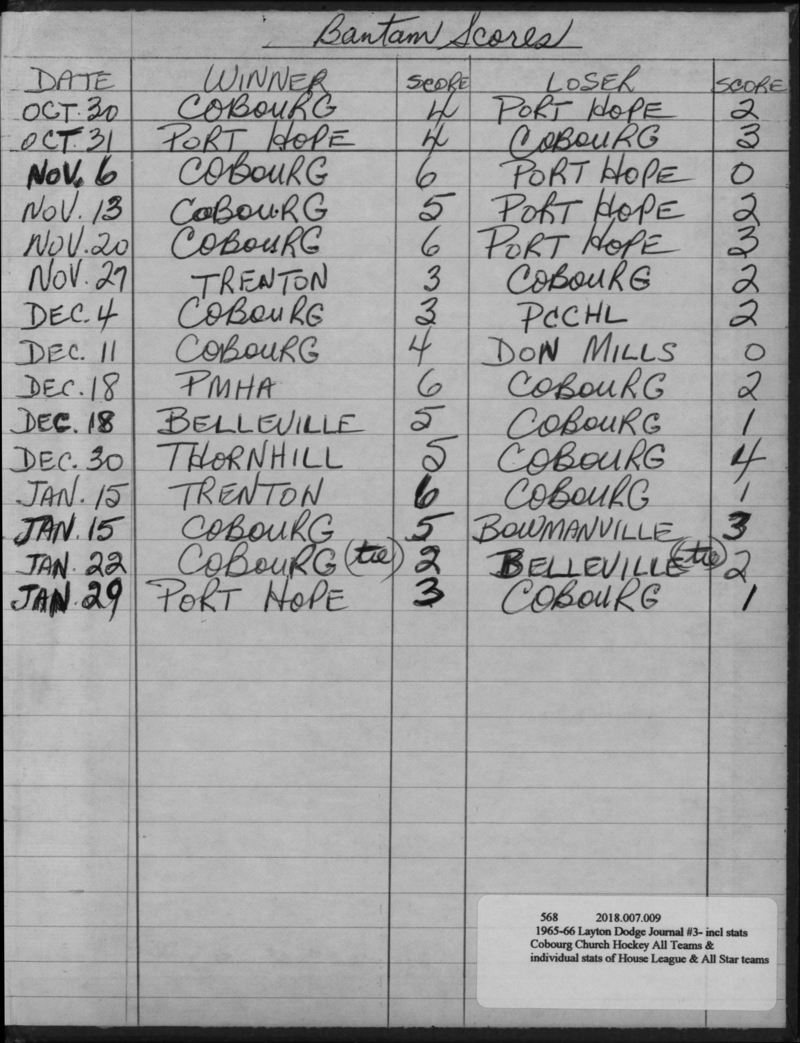 Bantam Scores
DATE WINNER SCORE LOSER SCORE
OCT. 30 COBOURG 4 PORT HOPE 2
OCT. 31 PORT HOPE 4 COBOURG 3
NOV. 6 COBOURG 6 PORT HOPE 0
NOV. 13 COBOURG 5 PORT HOPE 2
NOV. 20 COBOURG 6 PORT HOPE 3
NOV. 27 TRENTON 3 COBOURG 2
DEC. 4 COBOURG 3 PCCHL 2
DEC. 11 COBOURG 4 DON MILLS 0
DEC. 18 PMHA 6 COBOURG 2
DEC. 18 BELLEVILLE 5 COBOURG 1
DEC. 30 THORNHILL 5 COBOURG 4
JAN. 15 TRENTON 6 COBOURG 1
JAN. 15 COBOURG 5 BOWMANVILLE 3
JAN. 22 COBOURG (tie) 2 BELLEVILLE (tie) 2
JAN. 29 PORT HOPE 3 COBOURG 1
568 2018.007.009
1965-66 Layton Dodge Journal #3- incl stats
Cobourg Church Hockey All Teams &
individual stats of House League & All Star teams